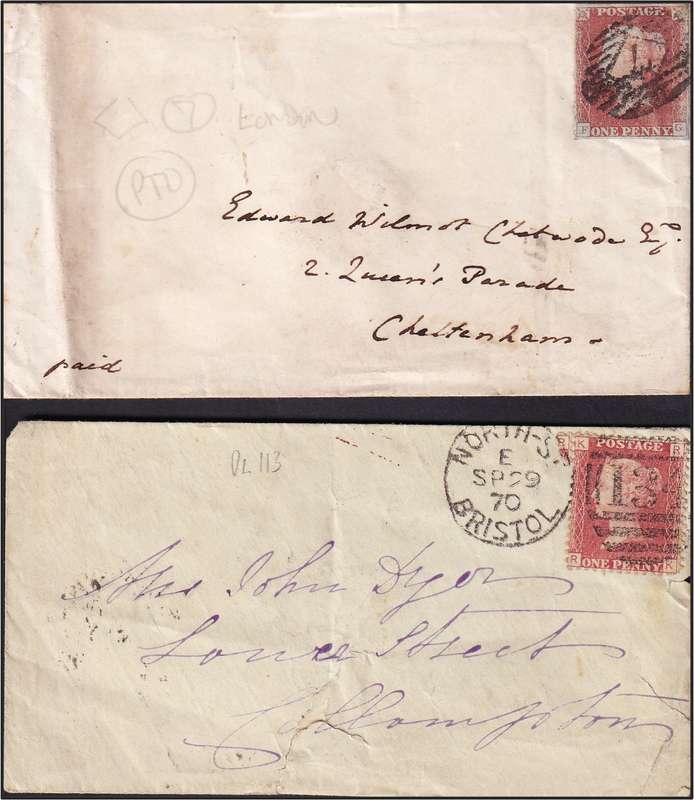 POSTAGE
F G
ONE PENNY
7 London
PTO
Edward Wilmot Chetwode Esq.
2. Queen's Parade
Cheltenham.
paid
PL 113
NORTH-ST
E
SP 29
70
BRISTOL
K POSTAGE R
134
R ONE PENNY K
Mrs John Dyer
Lower Street
Collompton